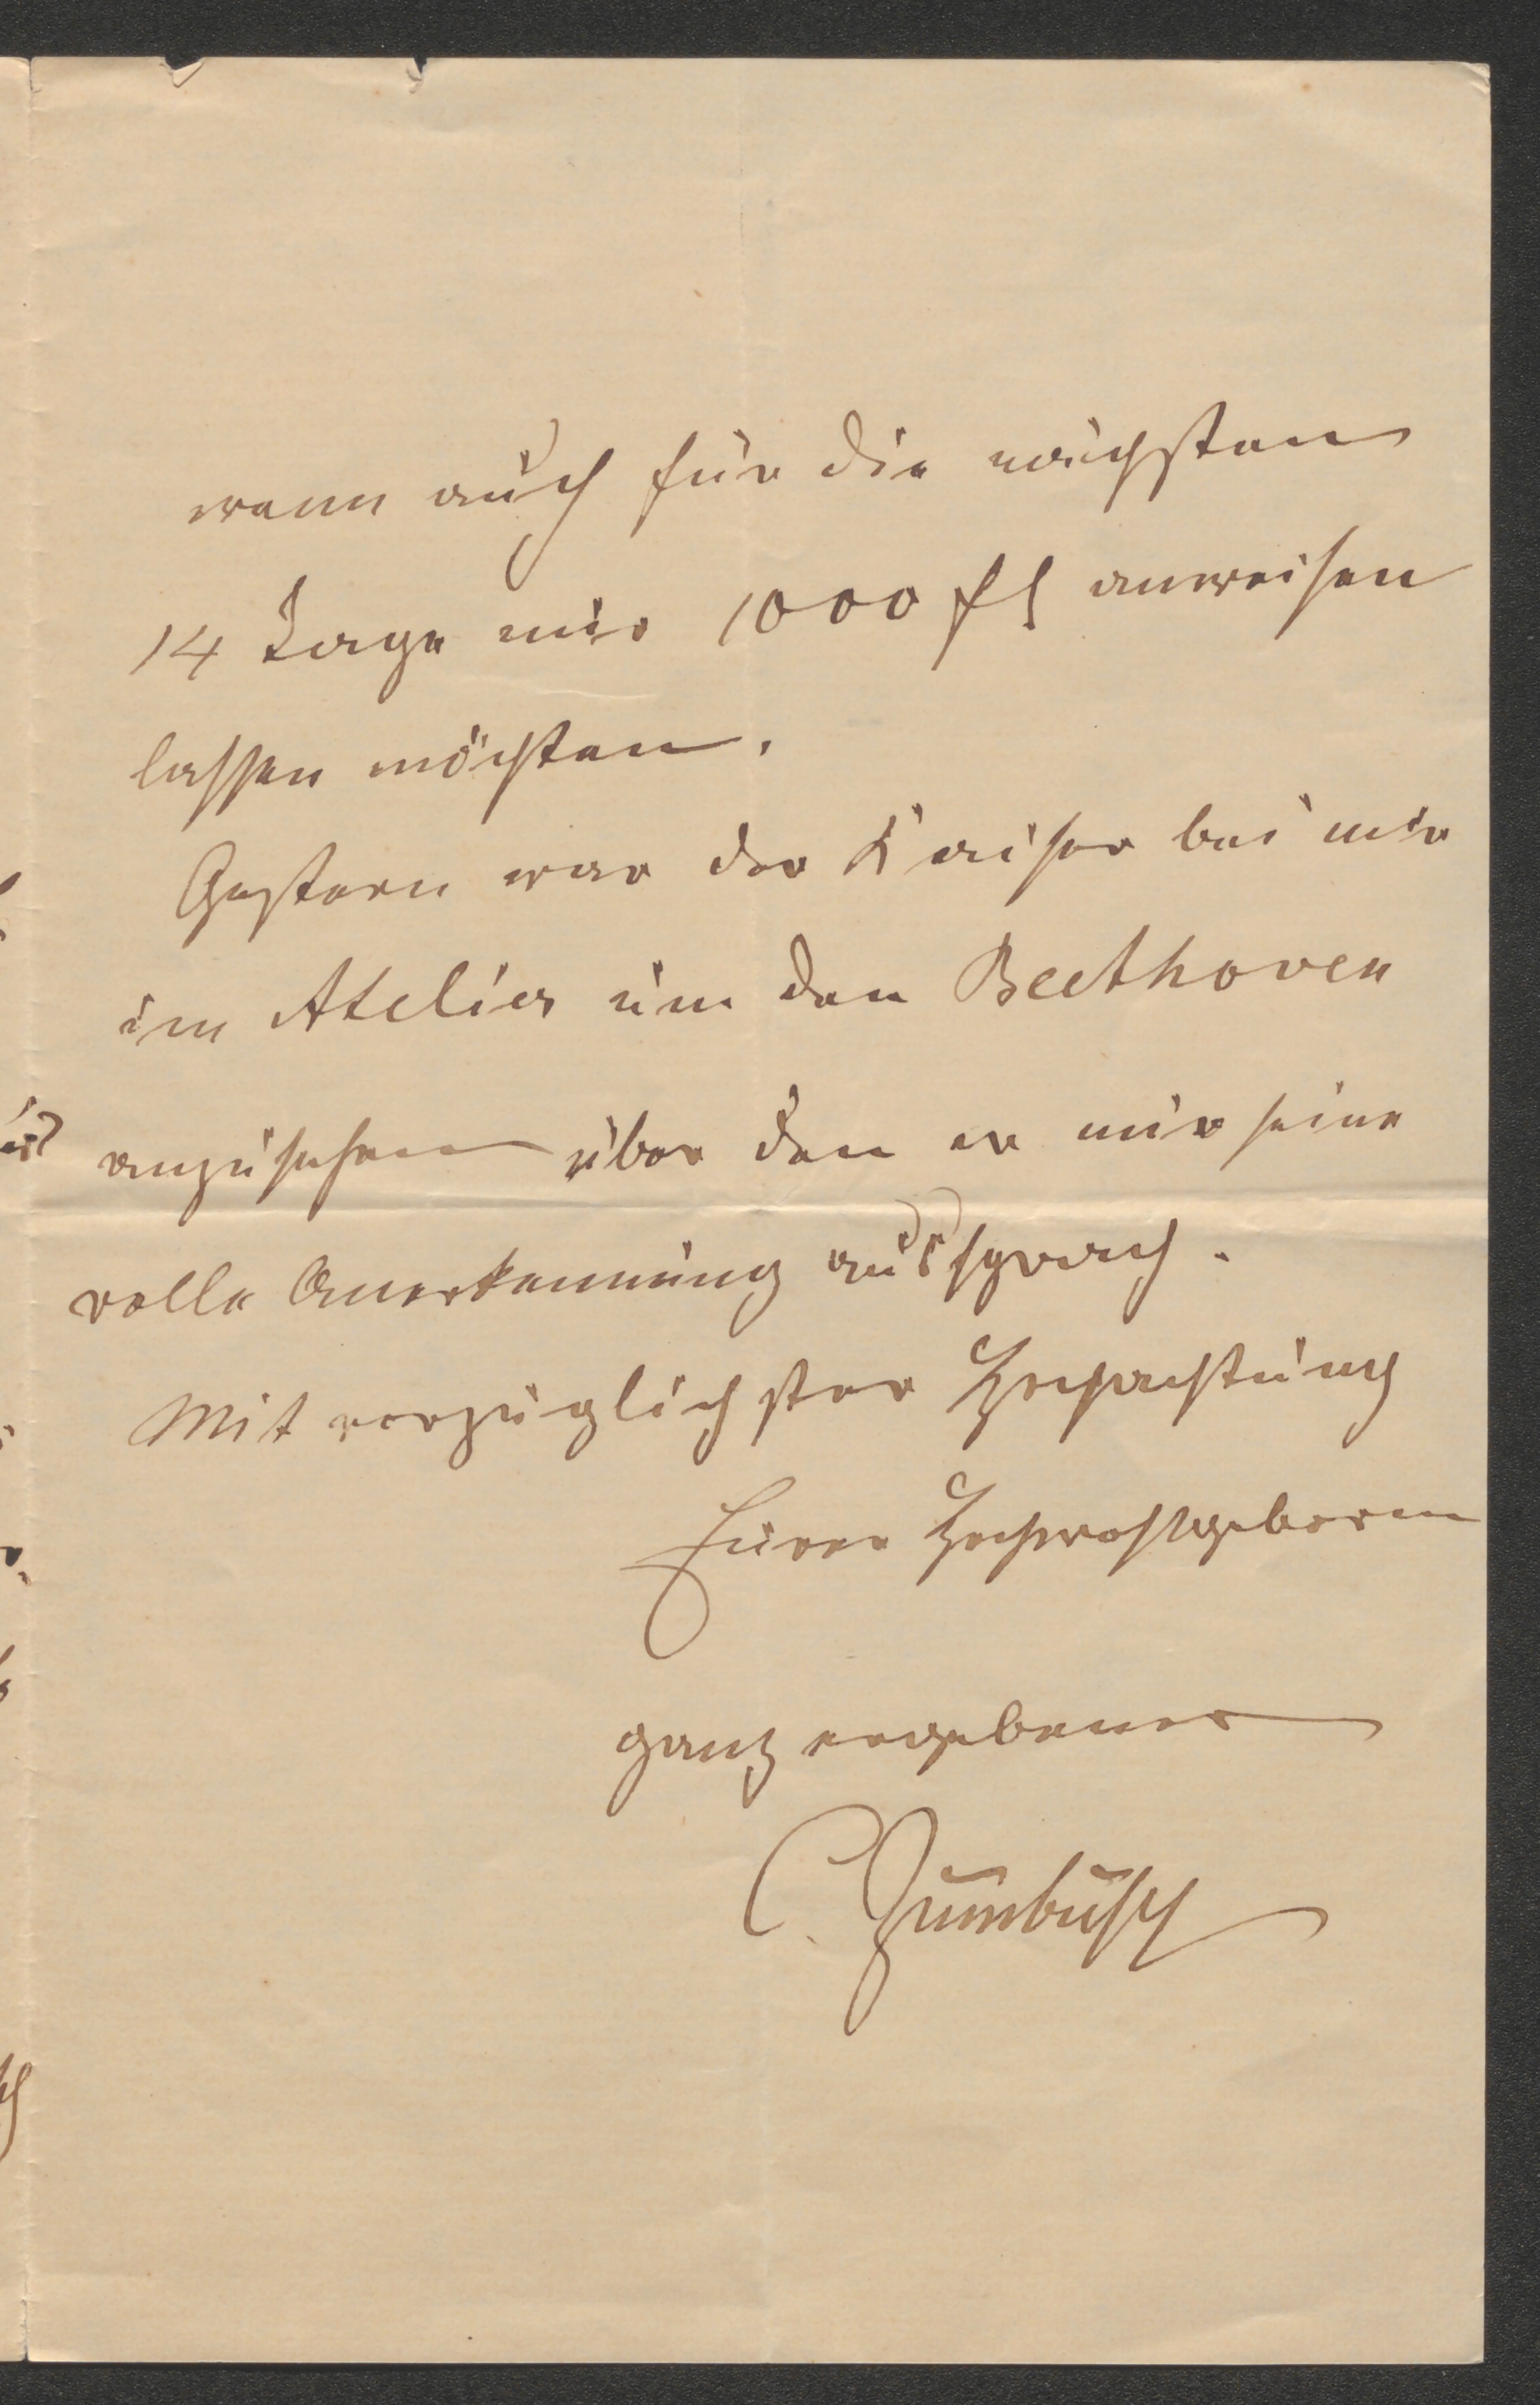 wenn auch für die nächsten
14 Tage nur 1000 fl anweisen
lassen möchten.
Gestern war der Kaiser bei mir
im Atelier um den Beethoven
anzusehen über den er mir seine
volle Anerkennung aussprach.
Mit vorzüglichster Hochachtung
Eurer Hochwohlgeboren
ganz ergebener
C. Zumbusch